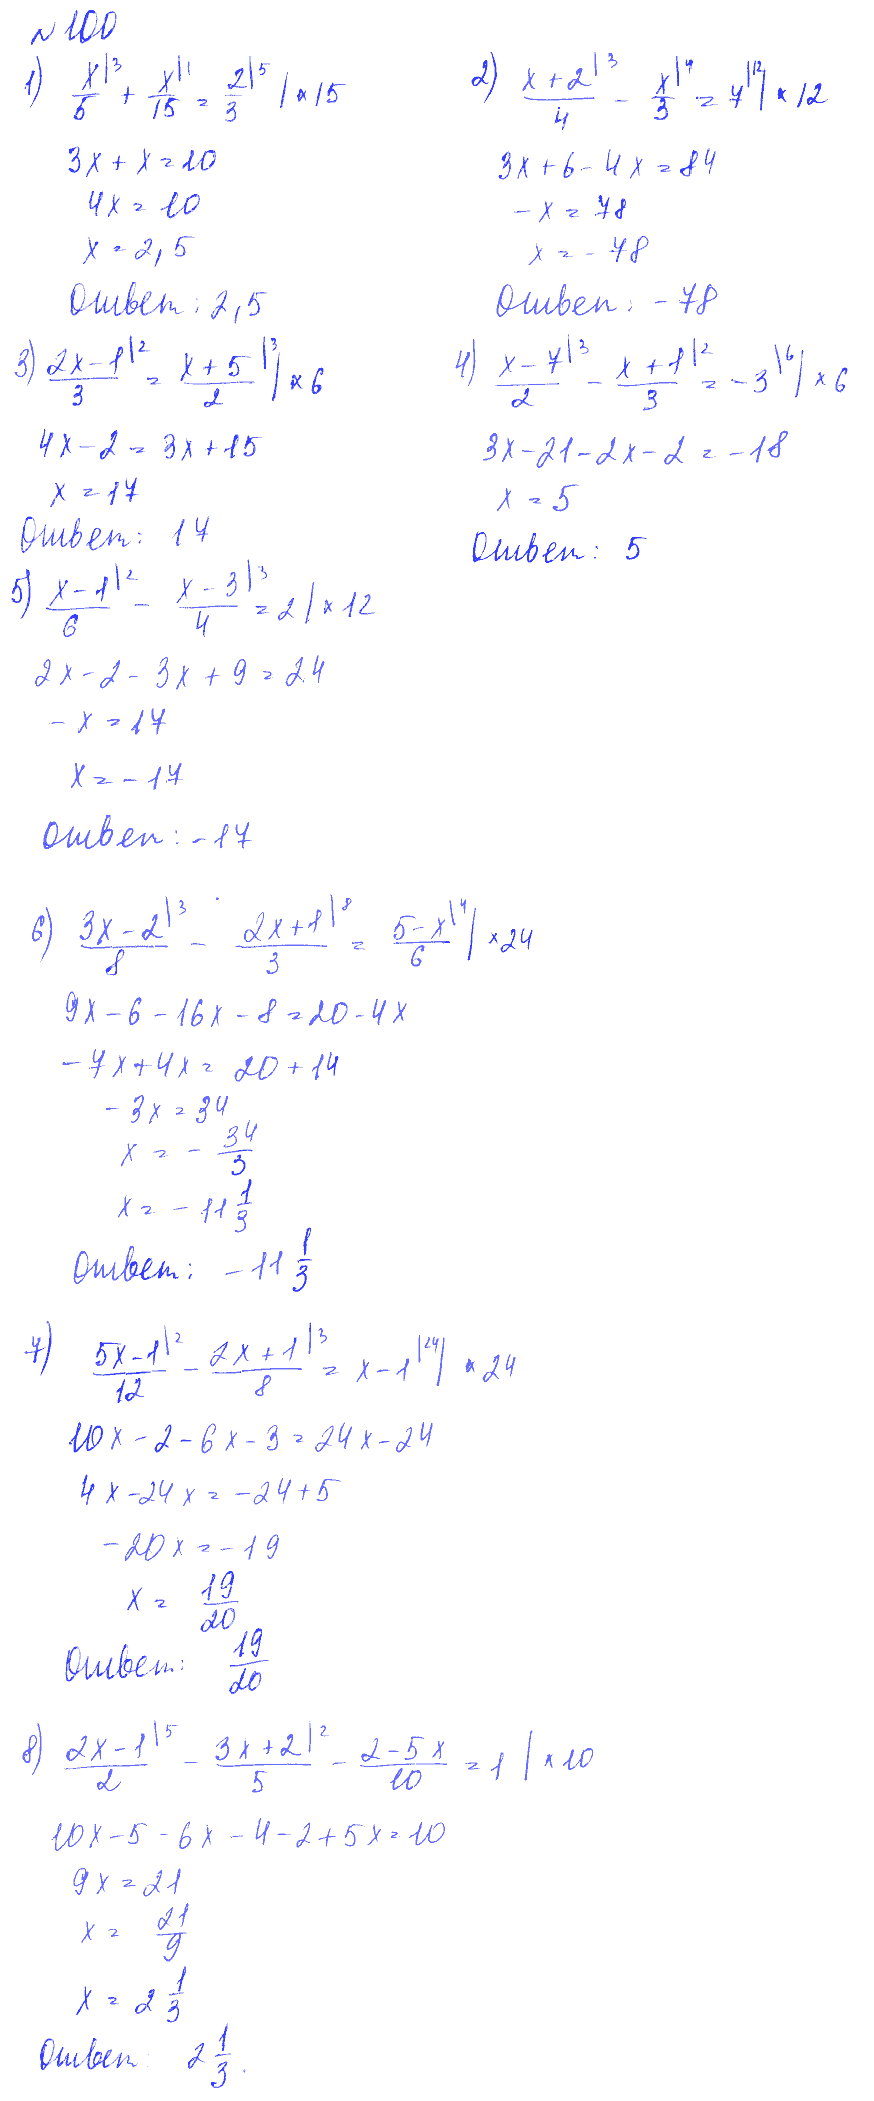 №100
1) x/5|³ + x/15|¹ = 2/3|⁵ | × 15
3x + x = 10
4x = 10
x = 2,5
Ответ: 2,5
2) (x + 2)/4|³ - x/3|⁴ = 7|¹² | × 12
3x + 6 - 4x = 84
- x = 78
x = - 78
Ответ: - 78
3) (2x - 1)/3|² = (x + 5)/2|³ | × 6
4x - 2 = 3x + 15
x = 17
Ответ: 17
4) (x - 7)/2|³ - (x + 1)/3|² = - 3|⁶ | × 6
3x - 21 - 2x - 2 = - 18
x = 5
Ответ: 5
5) (x - 1)/6|² - (x - 3)/4|³ = 2 | × 12
2x - 2 - 3x + 9 = 24
- x = 17
x = - 17
Ответ: - 17
6) (3x - 2)/8|³ - (2x + 1)/3|⁸ = (5 - x)/6|⁴ | × 24
9x - 6 - 16x - 8 = 20 - 4x
- 7x + 4x = 20 + 14
- 3x = 34
x = - 34/3
x = - 11 1/3
Ответ: - 11 1/3
7) (5x - 1)/12|² - (2x + 1)/8|³ = x - 1|²⁴ | × 24
10x - 2 - 6x - 3 = 24x - 24
4x - 24x = - 24 + 5
- 20x = - 19
x = 19/20
Ответ: 19/20
8) (2x - 1)/2|⁵ - (3x + 2)/5|² - (2 - 5x)/10 = 1 | × 10
10x - 5 - 6x - 4 - 2 + 5x = 10
9x = 21
x = 21/9
x = 2 1/3
Ответ: 2 1/3.